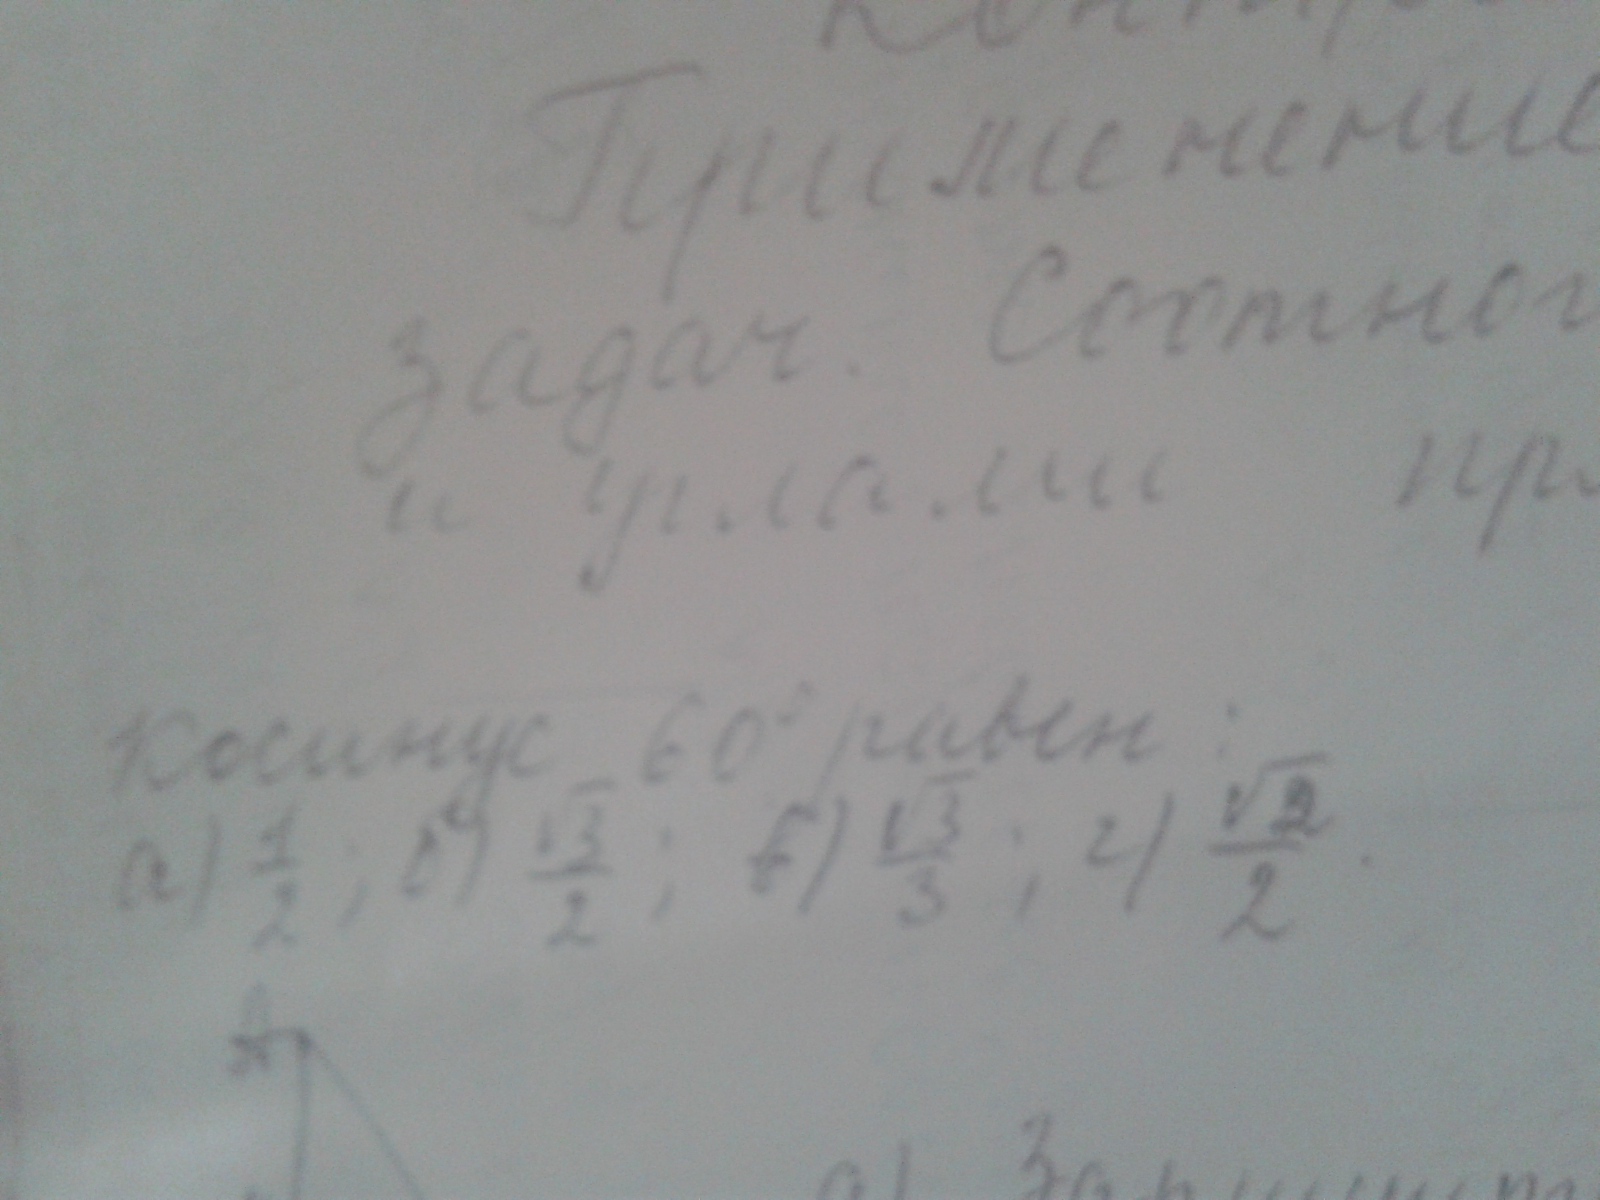 Контро
Применение
задач. Соотнош
и углами пря
Косинус 60° равен:
а) 1/2; б) √3/2; в) √3/3; г) √2/2.
А
а) Запишит